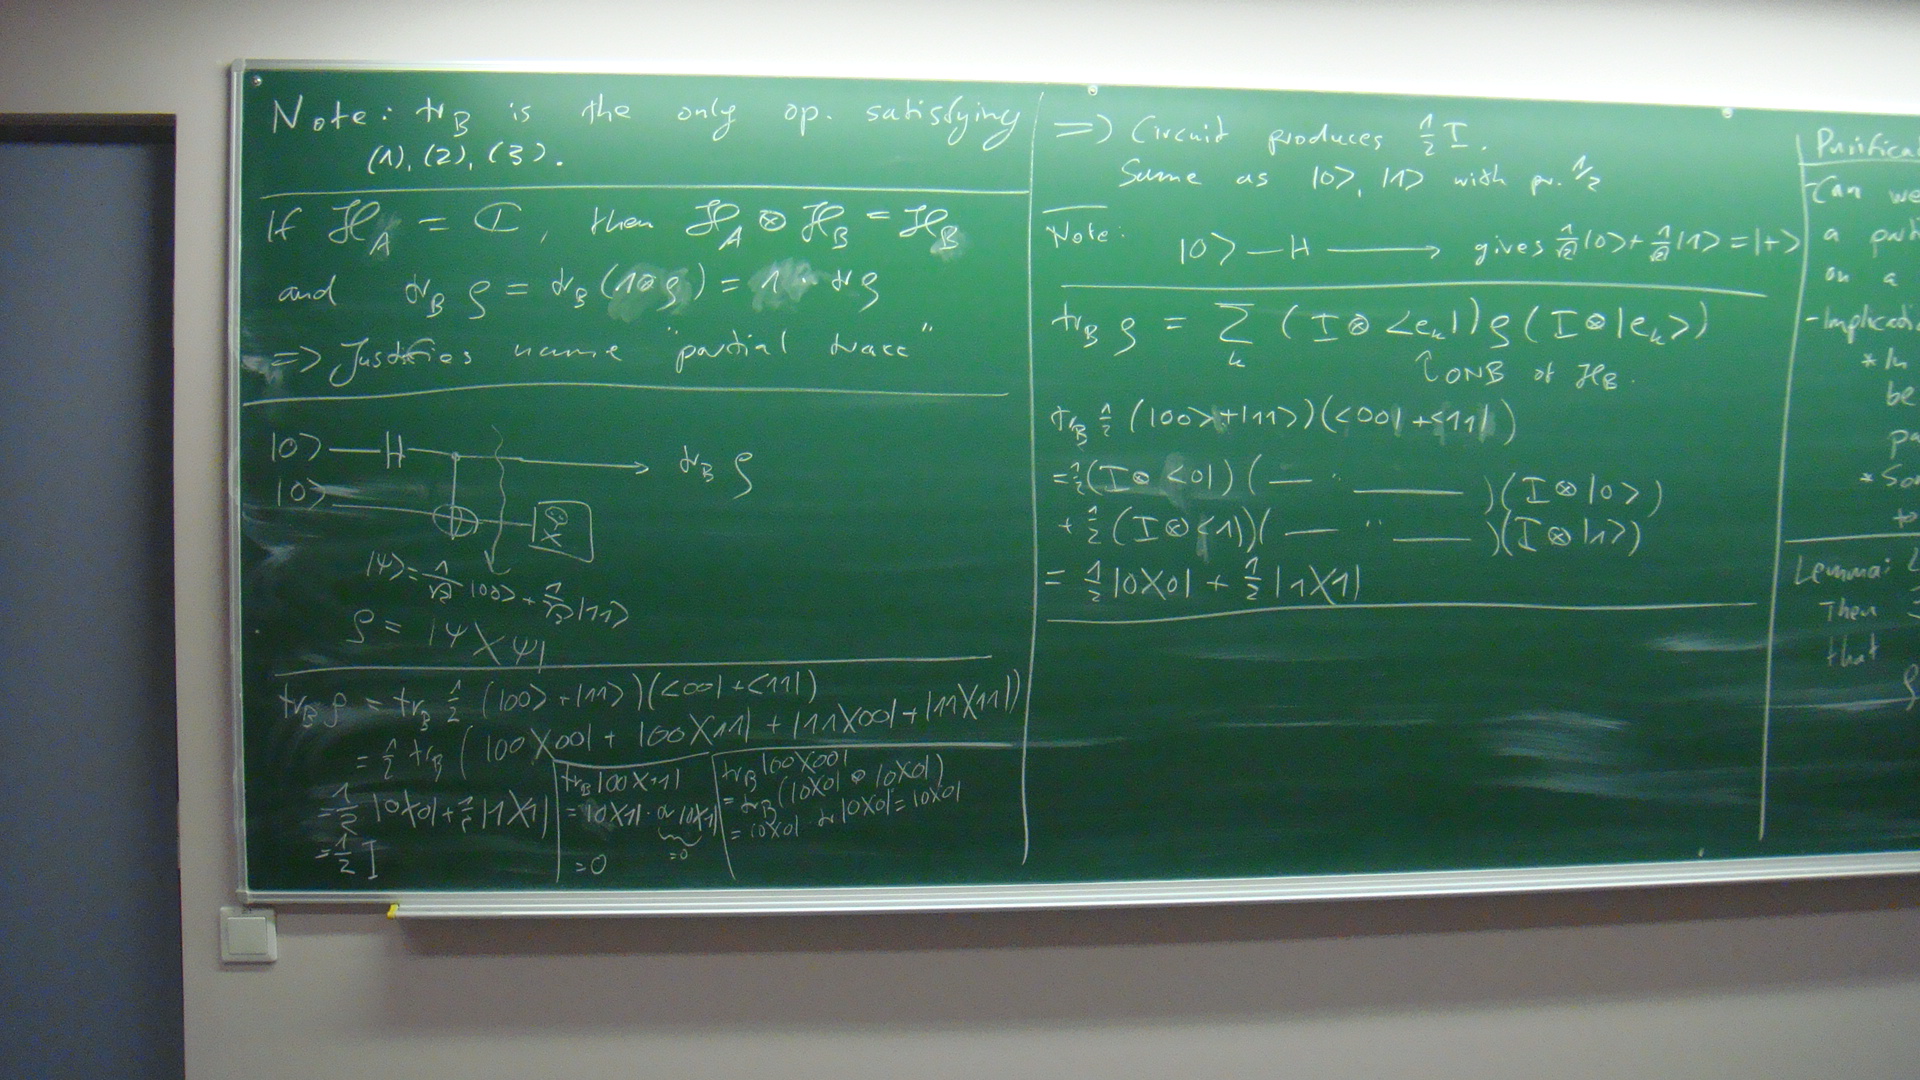 Note: tr_B is the only op. satisfying
(1), (2), (3).
If ℋ_A = ℂ, then ℋ_A ⊗ ℋ_B = ℋ_B
and tr_B ρ = tr_B (1⊗ρ) = 1 · tr ρ
=> Justifies name "partial trace"
|0> — H tr_B ρ
|0>
|ψ> = 1/√2 |00> + 1/√2 |11>
ρ = |ψ><ψ|
tr_B ρ = tr_B 1/2 (|00> + |11>)(<00| + <11|)
= 1/2 tr_B (|00><00| + |00><11| + |11><00| + |11><11|)
= 1/2 |0><0| + 1/2 |1><1|
= 1/2 I
tr_B |00><11|
= |0><1| · tr |0><1|
=0
=0
tr_B |00><00|
= tr_B (|0><0| ⊗ |0><0|)
= |0><0| tr |0><0| = |0><0|
=> Circuit produces 1/2 I.
Same as |0>, |1> with pr. 1/2
Note: |0> — H → gives 1/√2 |0> + 1/√2 |1> = |+>
tr_B ρ = Σ_k (I ⊗ <e_k|) ρ (I ⊗ |e_k>)
↑ ONB of ℋ_B.
tr_B 1/2 (|00> + |11>)(<00| + <11|)
= 1/2 (I ⊗ <0|) ( — " — ) (I ⊗ |0>)
+ 1/2 (I ⊗ <1|) ( — " — ) (I ⊗ |1>)
= 1/2 |0><0| + 1/2 |1><1|
Purifica
- Can we
a parti
on a
- Implicatio
* In
be
pa
* So
to
Lemma:
Then ∃
that
ρ